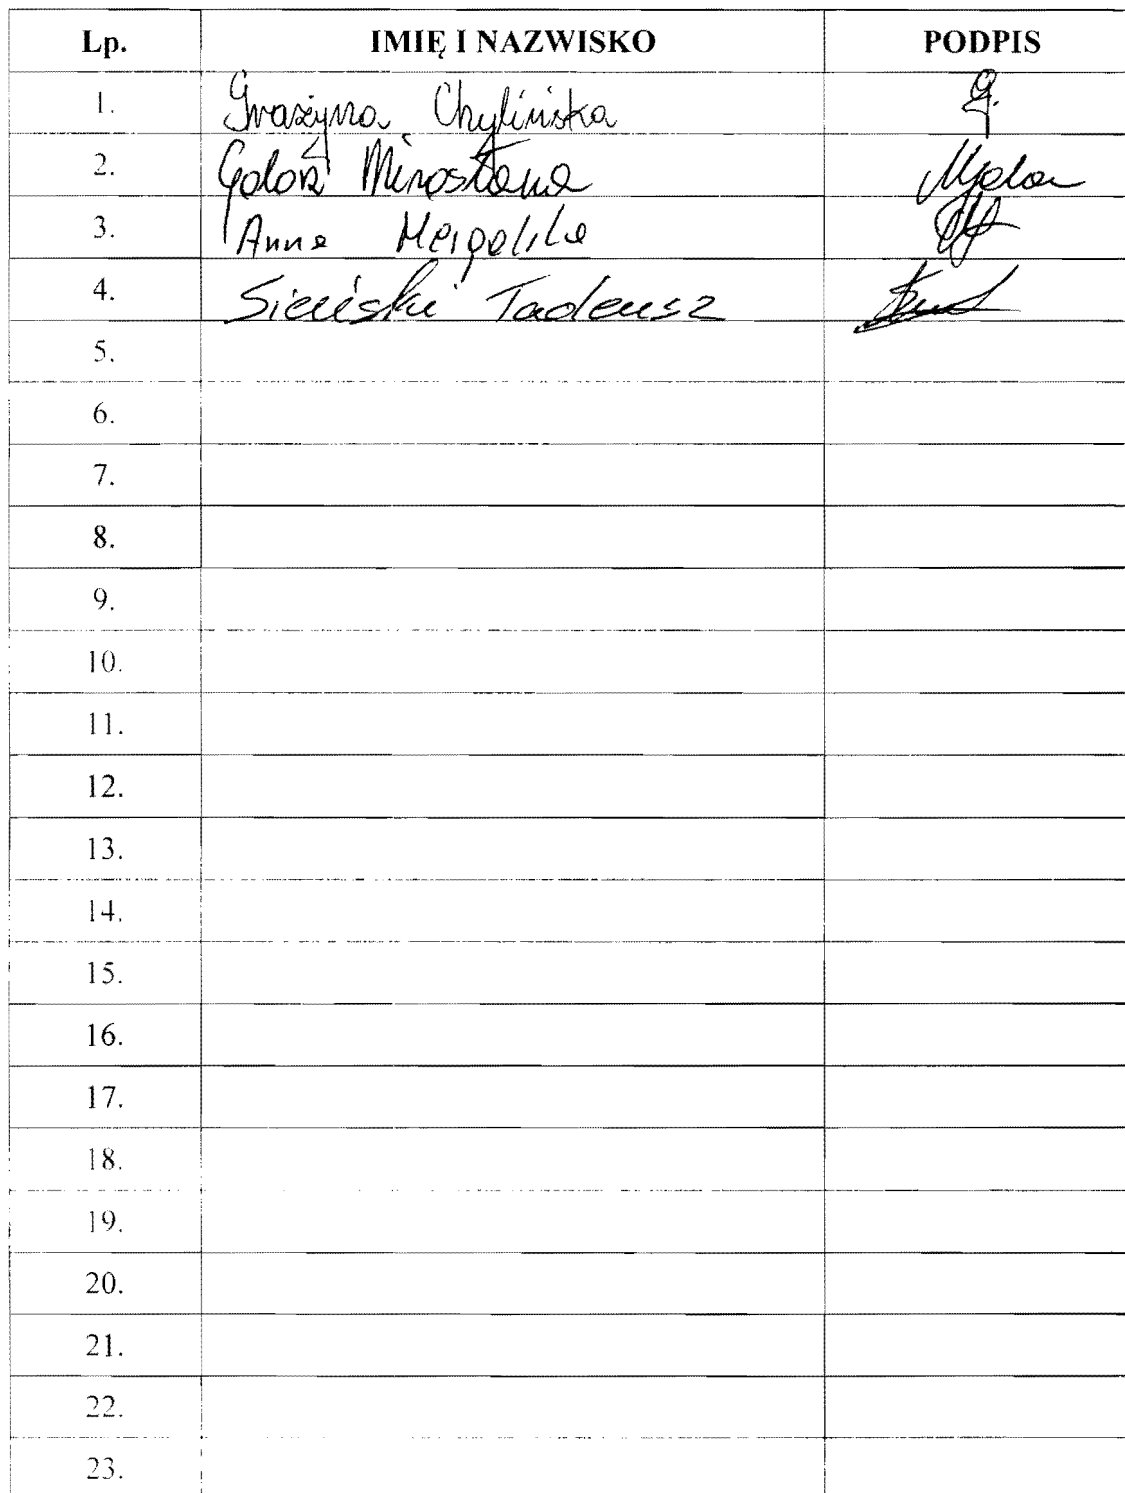 Lp. IMIĘ I NAZWISKO PODPIS
1. Grażyna Chylińska
2. Mirosława
3. Anna
4. Sieński Tadeusz
5.
6.
7.
8.
9.
10.
11.
12.
13.
14.
15.
16.
17.
18.
19.
20.
21.
22.
23.